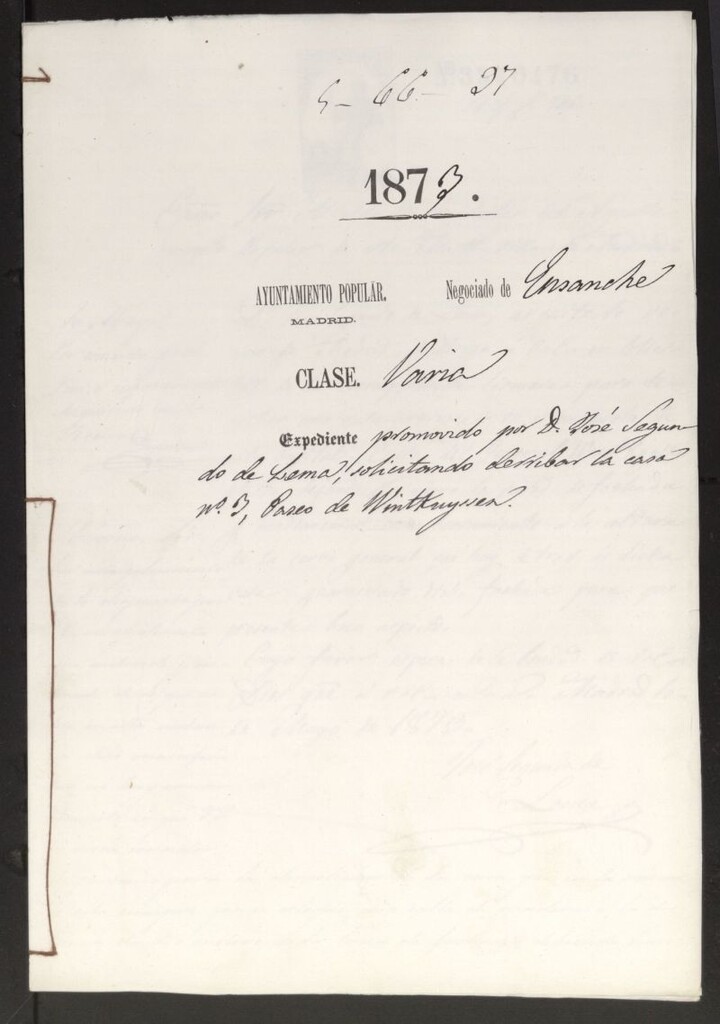 5- 66- 27
1873.
AYUNTAMIENTO POPULAR. Negociado de Ensanche
MADRID.
CLASE. Varia
Expediente promovido por D. José Segun-
do de Lema, solicitando derribar la casa
nº. 3, Paseo de Winthuyssen.